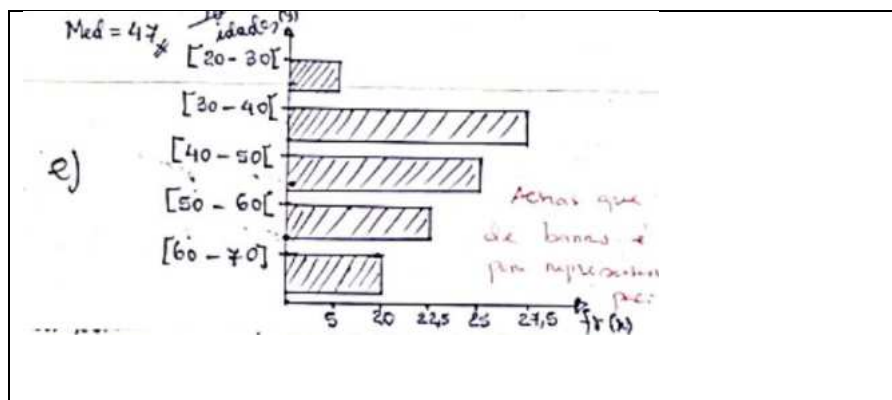 Med = 47
idades
[20-30[
[30-40[
e)
[40-50[
[50-60[
[60-70]
Achas que
de barras é
pra
5 20 22,5 25 27,5 fr (%)